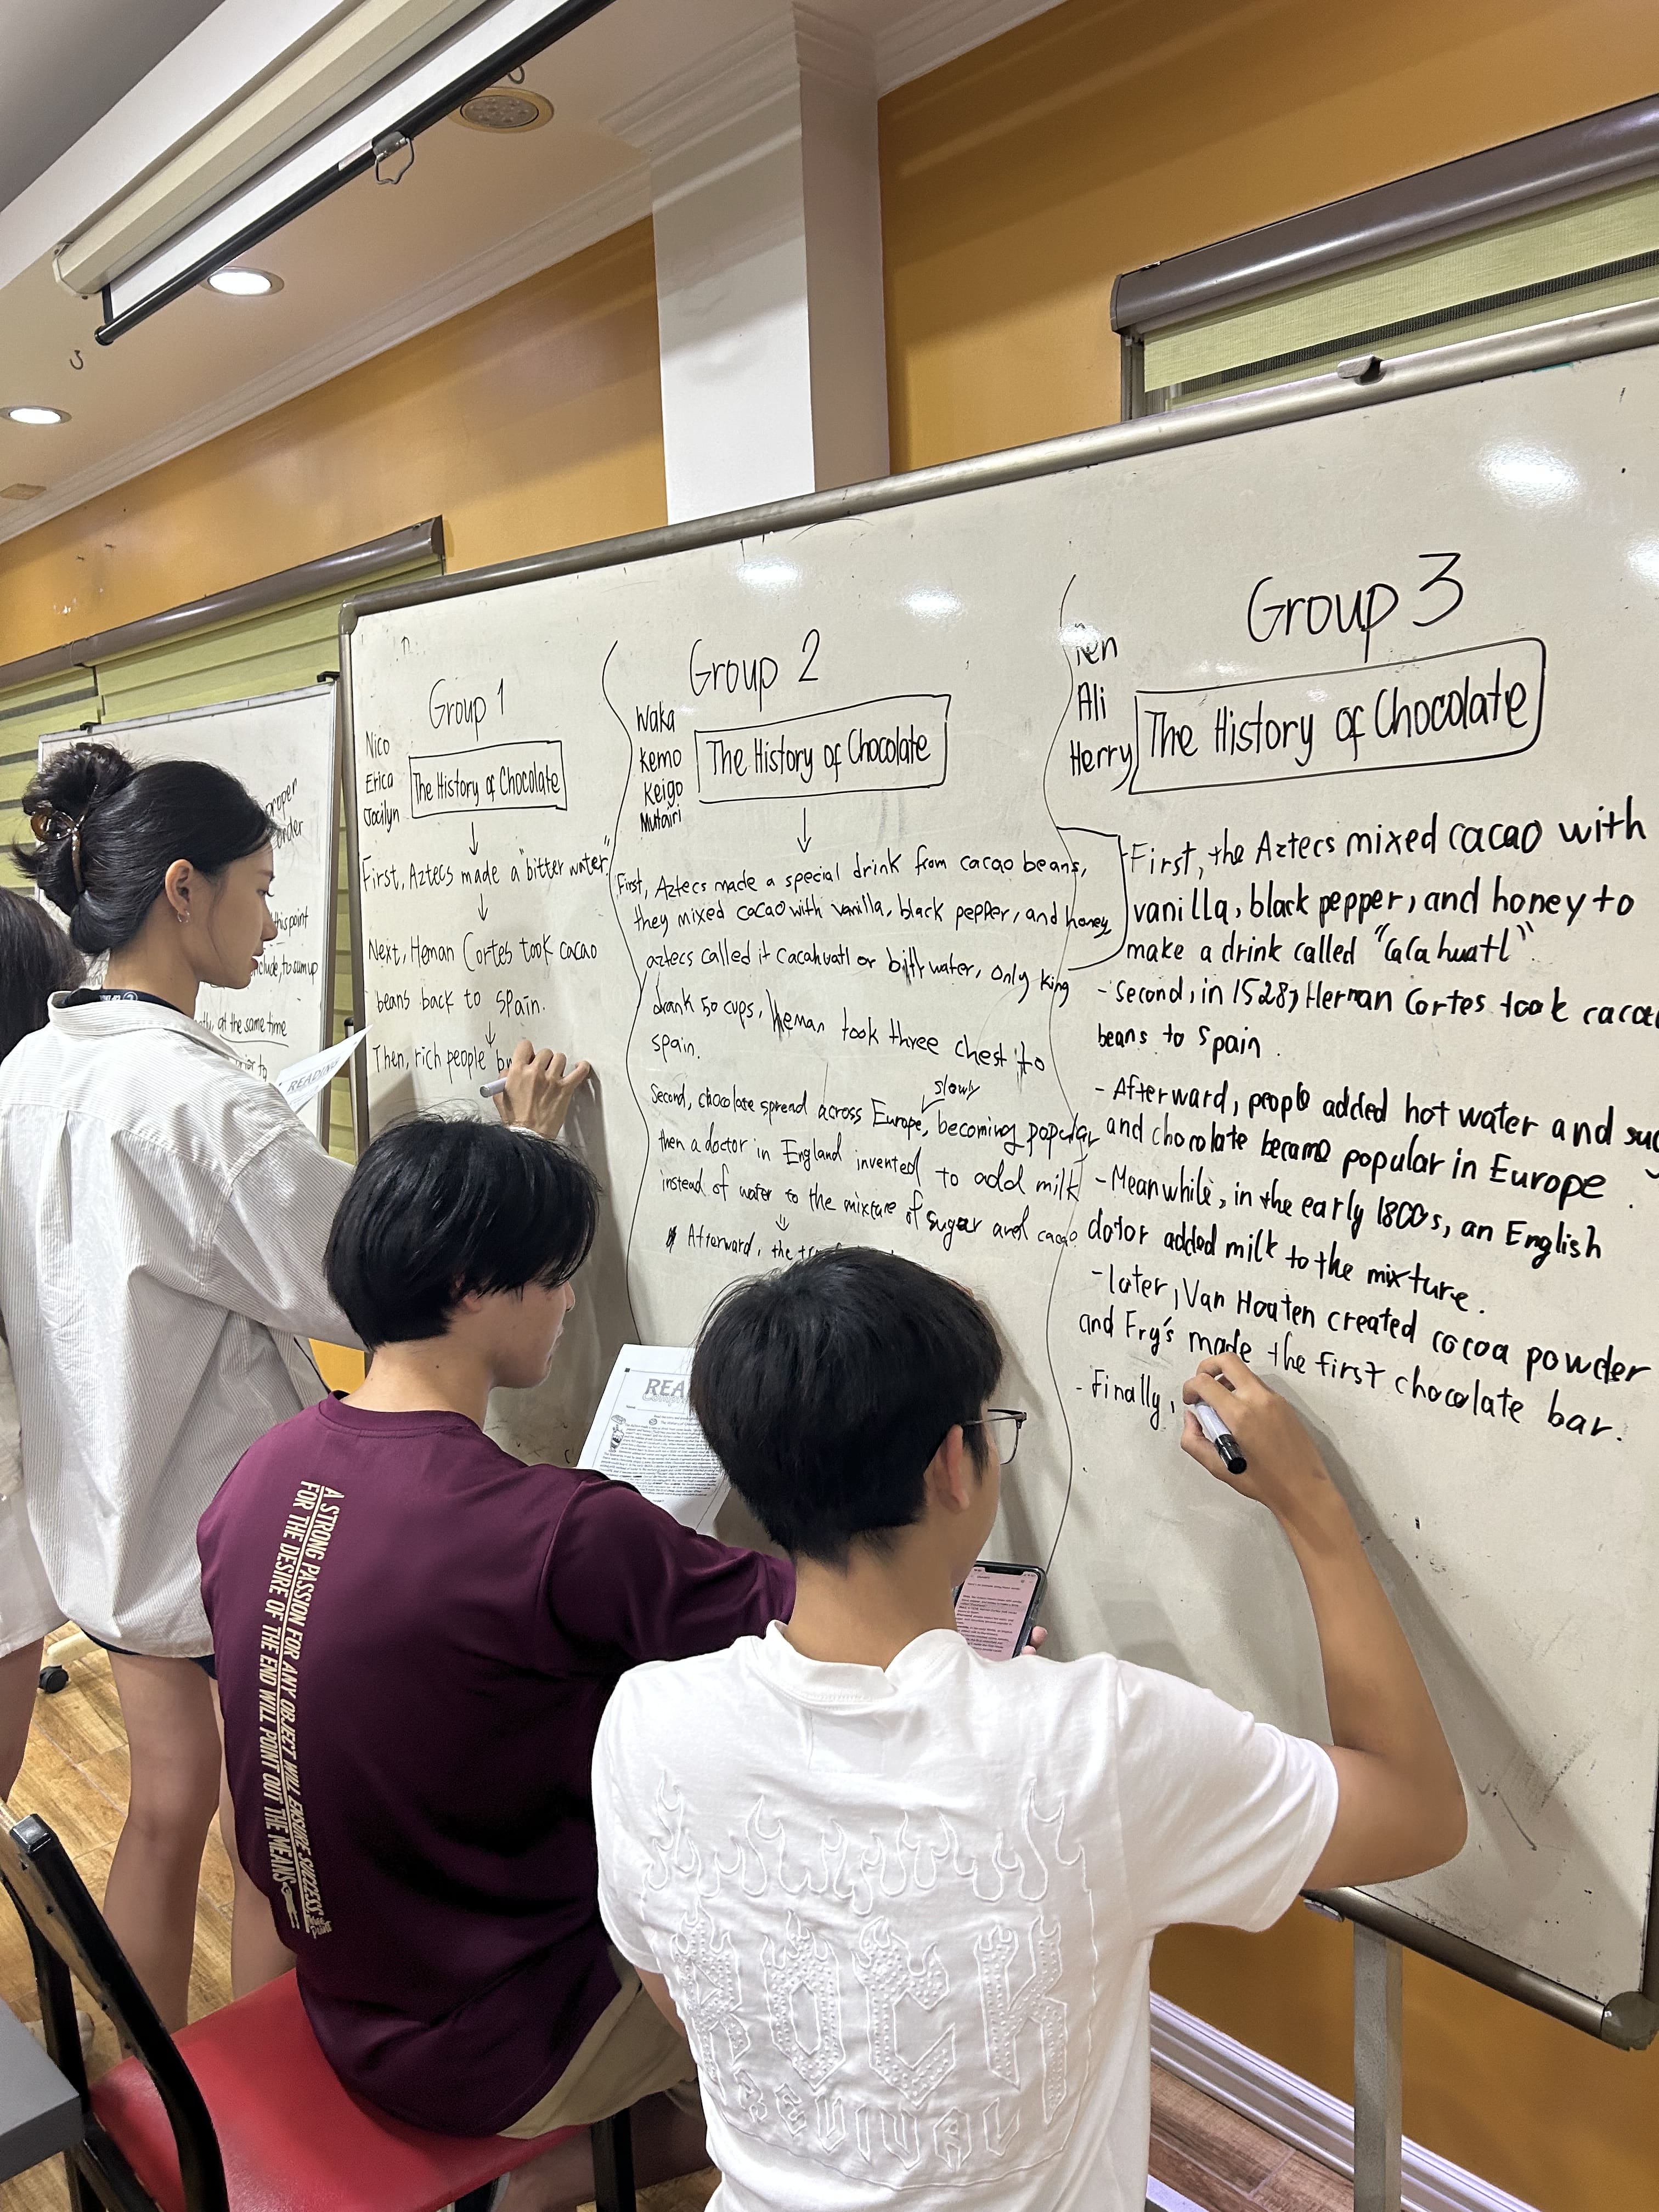 Group 1
Nico
Erica
Jocilyn
The History of Chocolate
First, Aztecs made a "bitter water."
Next, Heman Cortes took cacao
beans back to spain.
Then, rich people
Group 2
Waka
Kemo
Keigo
Mutairi
The History of Chocolate
First, Aztecs made a special drink from cacao beans,
they mixed cacao with vanilla, black pepper, and honey,
aztecs called it Cacahuatl or water, only king
drank 50 cups, heman took three chest to
spain.
slowly
Second, chocolate spread across Europe, becoming popular
then a doctor in England invented to add milk
instead of water to the mixture of sugar and cacao
Afterward, the
Group 3
Ali
Herry
The History of Chocolate
First, the Aztecs mixed cacao with
vanilla, black pepper, and honey to
make a drink called "CaCahuatl"
- Second, in 1528, Hernan Cortes took cacao
beans to Spain.
- Afterward, people added hot water and
and chocolate became popular in Europe.
- Meanwhile, in the early 1800s, an English
dotor added milk to the mixture.
- later, Van Houten created cocoa powder
and Fry's made the first chocolate bar.
- Finally,
proper
order
this point
to sum up
at the same time
to
READING
REA
A STRONG PASSION FOR ANY OBJECT WILL ENSURE SUCCESS,
FOR THE DESIRE OF THE END WILL POINT OUT THE MEANS
ROCK
REVIVAL